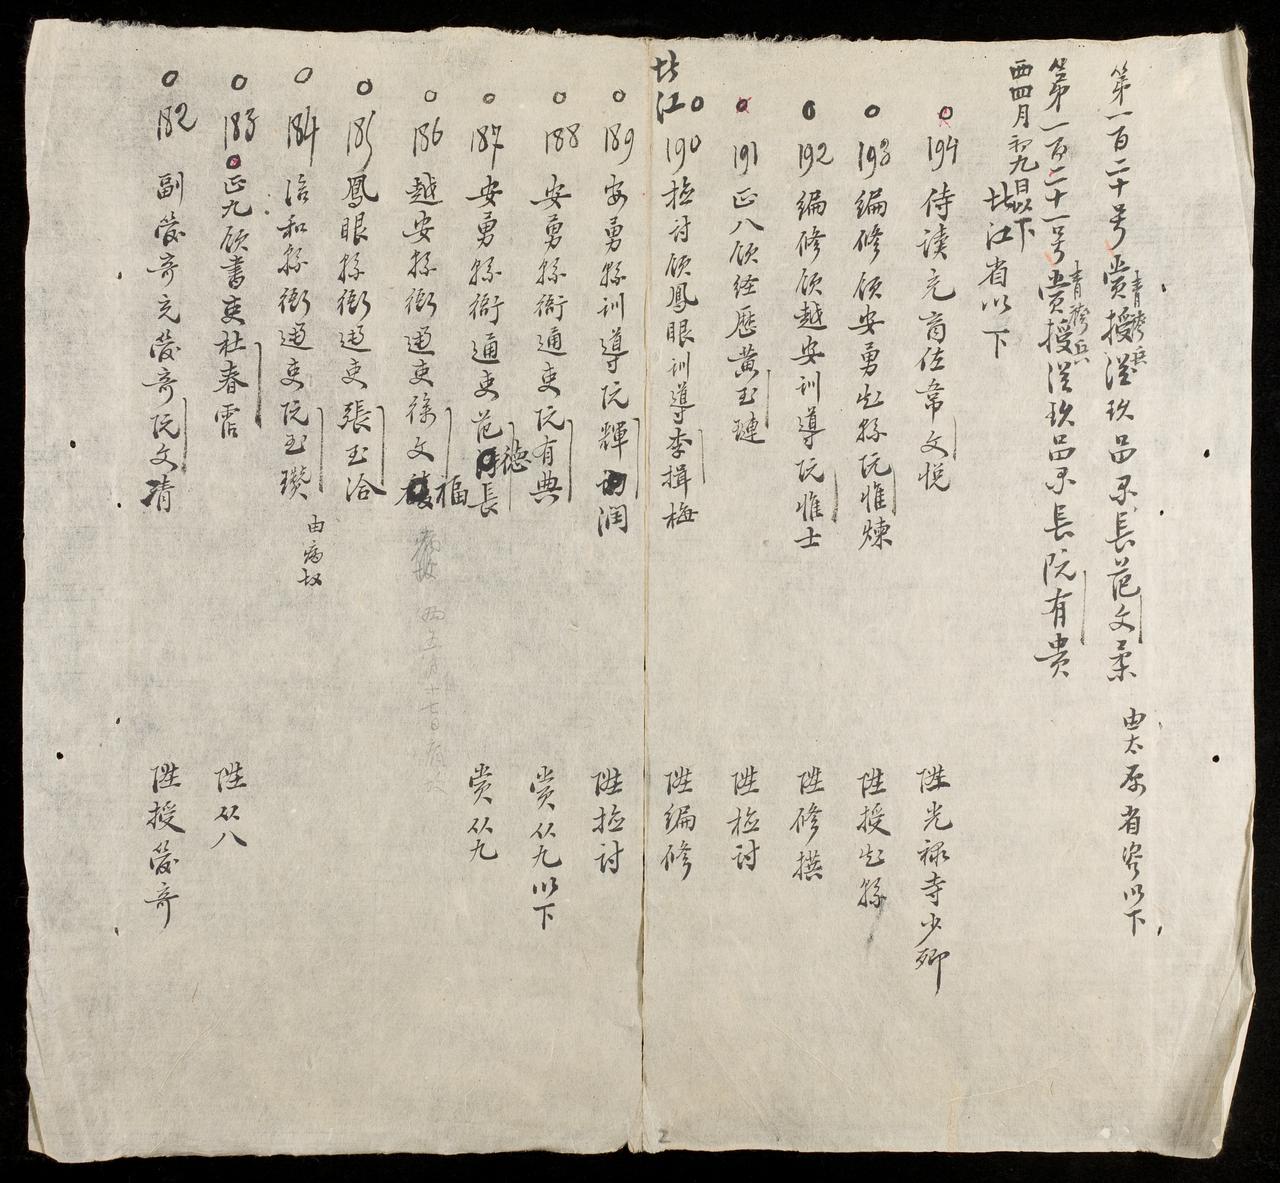 第一百二十号 賞授從玖品百長范文柔 由太原省咨以下
青袴兵
第一百二十一号 賞授從玖品百長阮有貴
青袴兵
四月初九日以下
北江省以下
194 侍讀充商佐韋文悅 陞光禄寺少卿
193 編修領安勇知縣阮惟煉 陞授知縣
192 編修領越安訓導阮惟士 陞修撰
191 正八領経歷黄玉璉 陞檢討
北江
190 檢討領鳳眼訓導李揖梅 陞編修
189 安勇縣訓導阮輝潤 陞檢討
188 安勇縣衙通吏阮有典 賞从九以下
187 安勇縣衙通吏范德長 賞从九
186 越安縣衙通吏徐文福 病故
185 鳳眼縣衙通吏張玉洽
184 洽和縣衙通吏阮玉瓚 由病故
183 正九領書吏杜春霑 陞从八
182 副管奇充管奇阮文清 陞授管奇
2